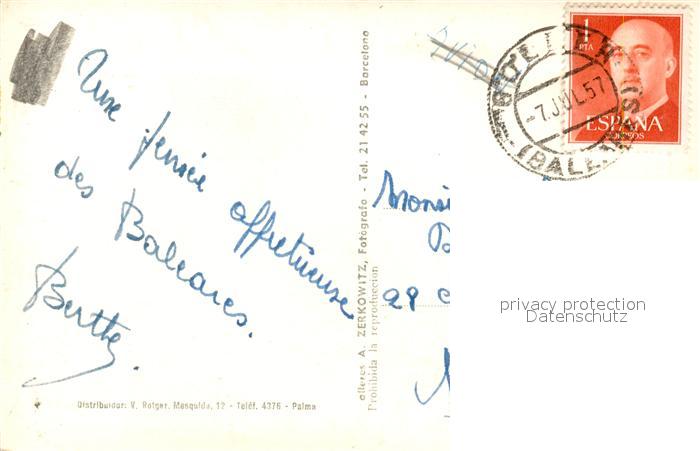 Une pensée affectueuse
des Baléares.
Berthe.
Distribuidor: V. Rotger. Mesquida, 12 - Teléf. 4376 - Palma
alleres A. ZERKOWITZ, Fotógrafo - Tel. 21 42 55 - Barcelona
Prohibida la reproduccion
Monsi
29
1
PTA
ESPAÑA
CORREOS
-7.JUL.57
(BALEARES)
privacy protection
Datenschutz